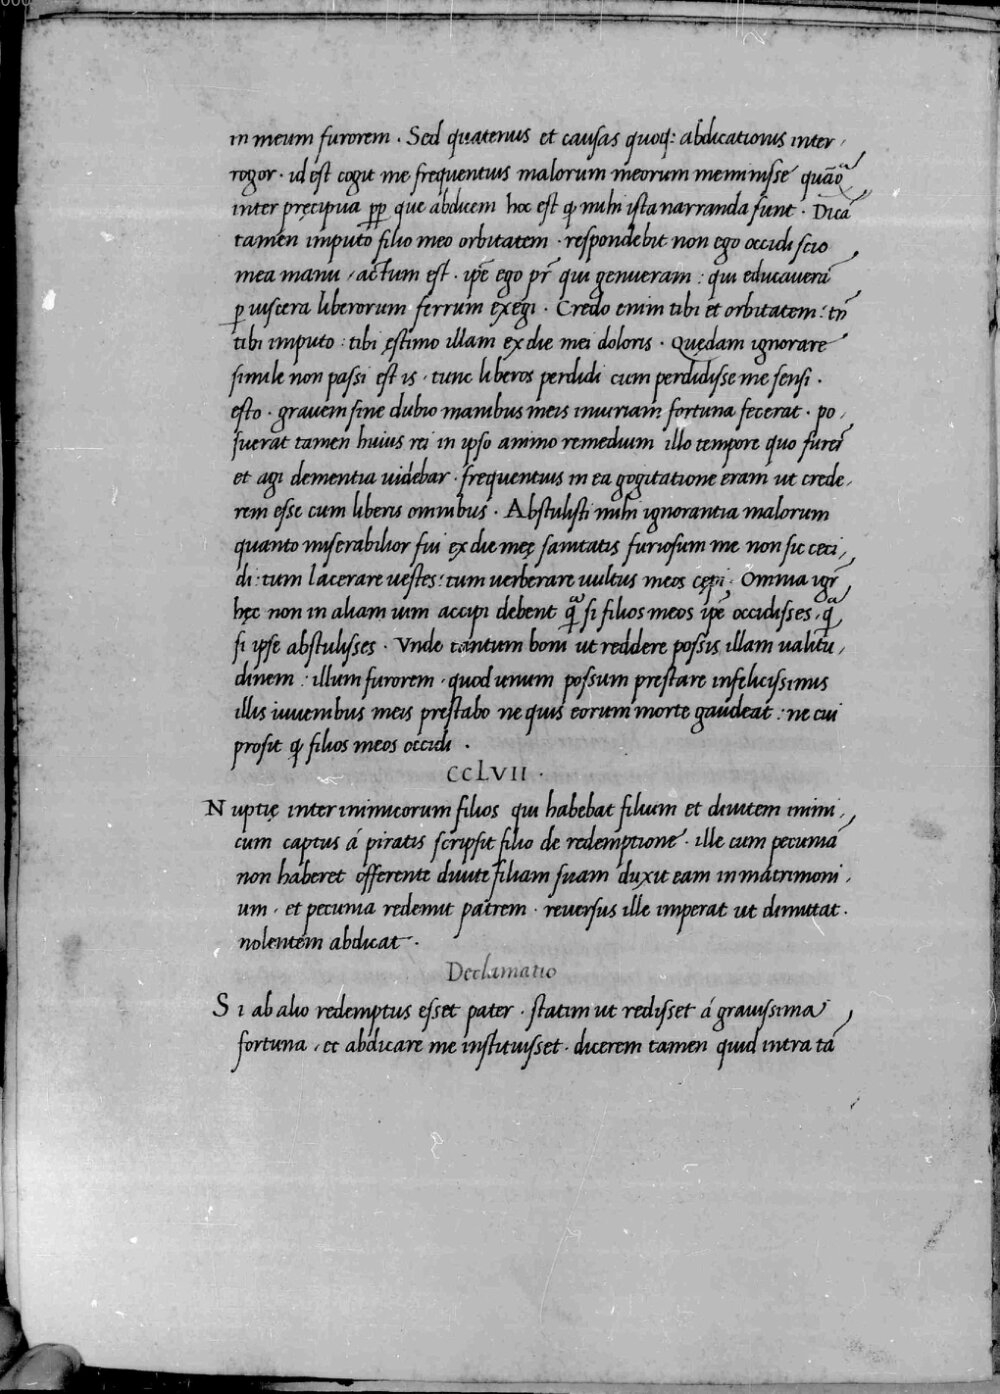 in meum furorem . Sed quatenus et causas quoq: abdicationis inter,
rogor . id est cogit me frequentius malorum meorum meminisse quãoͣ
inter pręcipua ꝓꝑ que abdicem hoc est ꝙ mihi ista narranda sunt . Dicã
tamen imputo filio meo orbitatem . respondebit non ego occidi scio
mea manu , actum est . ip̃e ego pr̃ qui genueram : qui educauerã
ꝑ uiscera liberorum ferrum exegi . Credo enim tibi et orbitatem : tñ
tibi imputo : tibi ęstimo illam ex die mei doloris . Quędam ignorare
simile non passi est is . tunc liberos perdidi cum perdidisse me sensi .
esto . grauem sine dubio manibus meis iniuriam fortuna fecerat . po,
suerat tamen huius rei in ipso animo remedium illo tempore quo furer̃
et agi dementia uidebar . frequentius in ea gogitatione eram ut crede,
rem esse cum liberis omnibus . Abstulisti mihi ignorantia malorum
quanto miserabilior fui ex die męę sanitatis furiosum me non sic ceci,
di : tum lacerare uestes : tum uerberare uultus meos cępi . Omnia igr̃
hęc non in aliam uim accipi debent qͣ̃ si filios meos ip̃e occidisses . qͣ̃
si ipse abstulisses . Vnde tantum boni ut reddere possis illam ualitu,
dinem : illum furorem . quod unum possum prestare infelicissimus
illis iuuenibus meis prestabo ne quis eorum morte gaudeat : ne cui
prosit ꝙ filios meos occidi .
CCLVII .
Nuptię inter inimicorum filios qui habebat filium et diuitem inimi,
cum captus á piratis scripsit filio de redemptione . ille cum pecuniã
non haberet offerente diuite filiam suam duxit eam in matrimoni,
um . et pecunia redemit patrem . reuersus ille imperat ut dimittat .
nolentem abdicat .
Declamatio
Si ab alio redemptus esset pater . statim ut redisset á grauissima
fortuna , et abdicare me instituisset . dicerem tamen quid intra tã